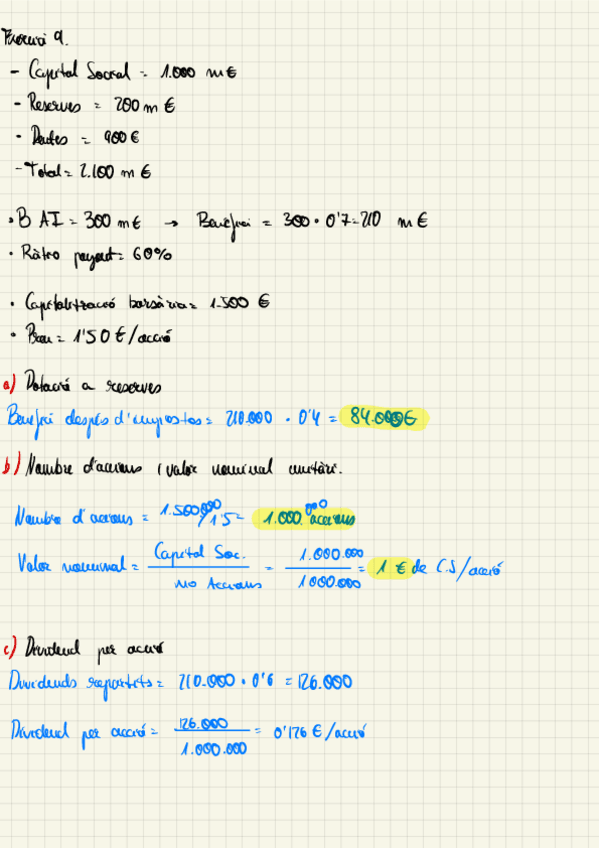 Exercici 9.
- Capital Social = 1.000 m€
- Reserves = 200 m €
- Deutes = 900 €
- Total = 2.100 m €
• B AI = 300 m€ → Benefici = 300 • 0'7 = 210 m€
• Ràtio payout = 60%
• Capitalització borsària = 1.500 €
• Preu = 1'50 €/acció
a) Dotació a reserves
Benefici després d'impostos = 210.000 • 0'4 = 84.000€
b) Nombre d'accions i valor nominal unitàri.
Nombre d'accions = 1.500.000/1'5 = 1.000.000 accions
Valor nominal = Capital Soc. / no Accions = 1.000.000 / 1000.000 = 1 € de C.S/acció
c) Dividend per acció
Dividends repartits = 210.000 • 0'6 = 126.000
Dividend per acció = 126.000 / 1.000.000 = 0'126 €/acció